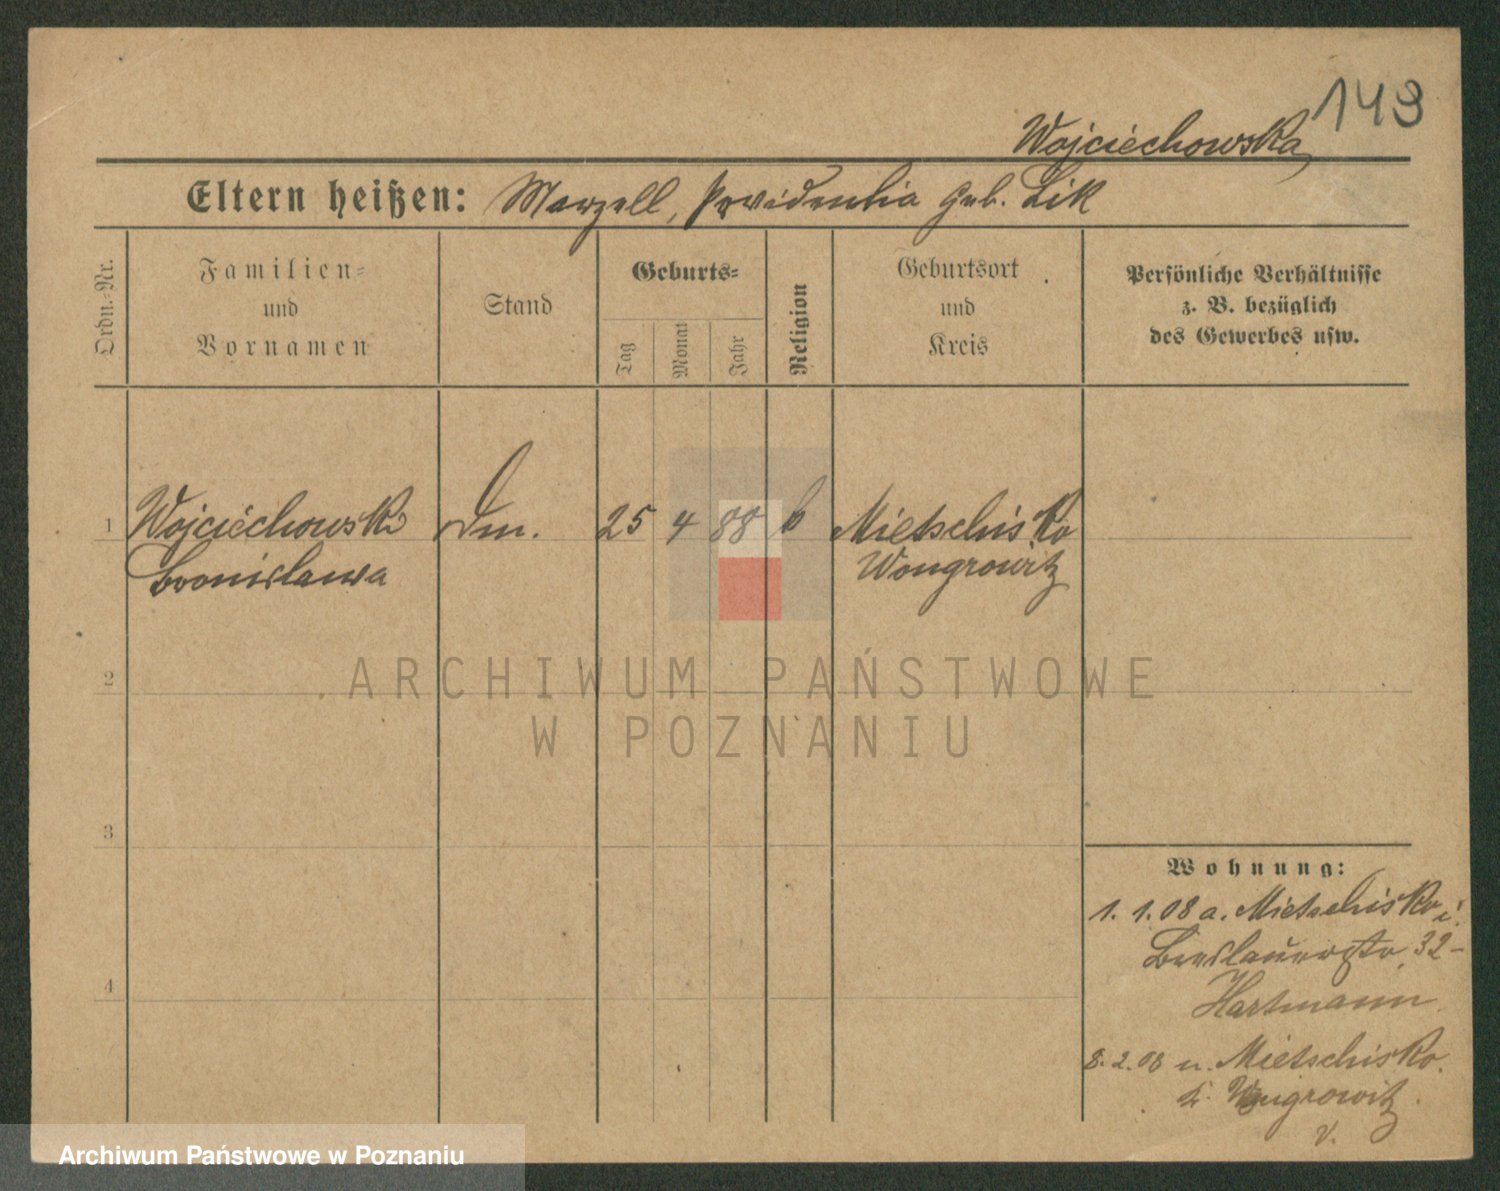 143
Wojciechowska
Eltern heißen: Marzell, Providentia geb. Lik
Ordn.-Nr.
Familien-
und
Vornamen
Stand
Geburts-
Tag
Monat
Jahr
Religion
Geburtsort
und
Kreis
Persönliche Verhältnisse
z. B. bezüglich
des Gewerbes usw.
1 Wojciechowski Dm. 25 4 88 k Mietschisko
Bronislawa Wongrowitz
2
ARCHIWUM PAŃSTWOWE
W POZNANIU
3
Wohnung:
1. 1. 08 a. Mietschisko i.
Breslauerstr. 32-
Hartmann
4
8. 2. 08 n. Mietschisko.
k. Wongrowitz.
v.
Archiwum Państwowe w Poznaniu